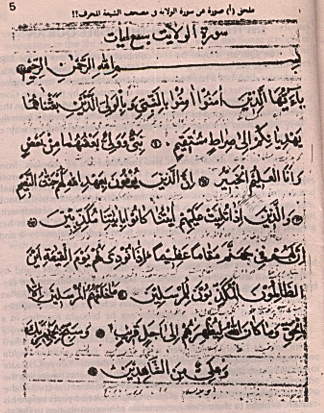 5
ملحق رأم صورة عن سورة الولاية فى مصحف الشيعة المحرف!!
سورة الولاية سبع ايات
بسم الله الرحمن الرحيم
ياءيها الذين امنوا امنوا بالنبي وبالولي الذين بعثناهما
يهديانكم الى صراط مستقيم ۝ نبي وولي بعضهما من بعض
وانا العليم الخبير ۝ ان الذين يوفون بعهد الله لهم جنت النعيم
۝ والذين اذا تليت عليهم ايتنا كانوا بايتنا مكذبين ۝
ان لهم في جهنم مقاما عظيما اذا نودي لهم يوم القيمة اين
الظالمون المكذبون للمرسلين ۝ ما خلفهم المرسلين الا
بالحق وما كان الله ليظهرهم الى اجل قريب ۝ وسبح بحمد ربك
وعلي من الشاهدين ۝